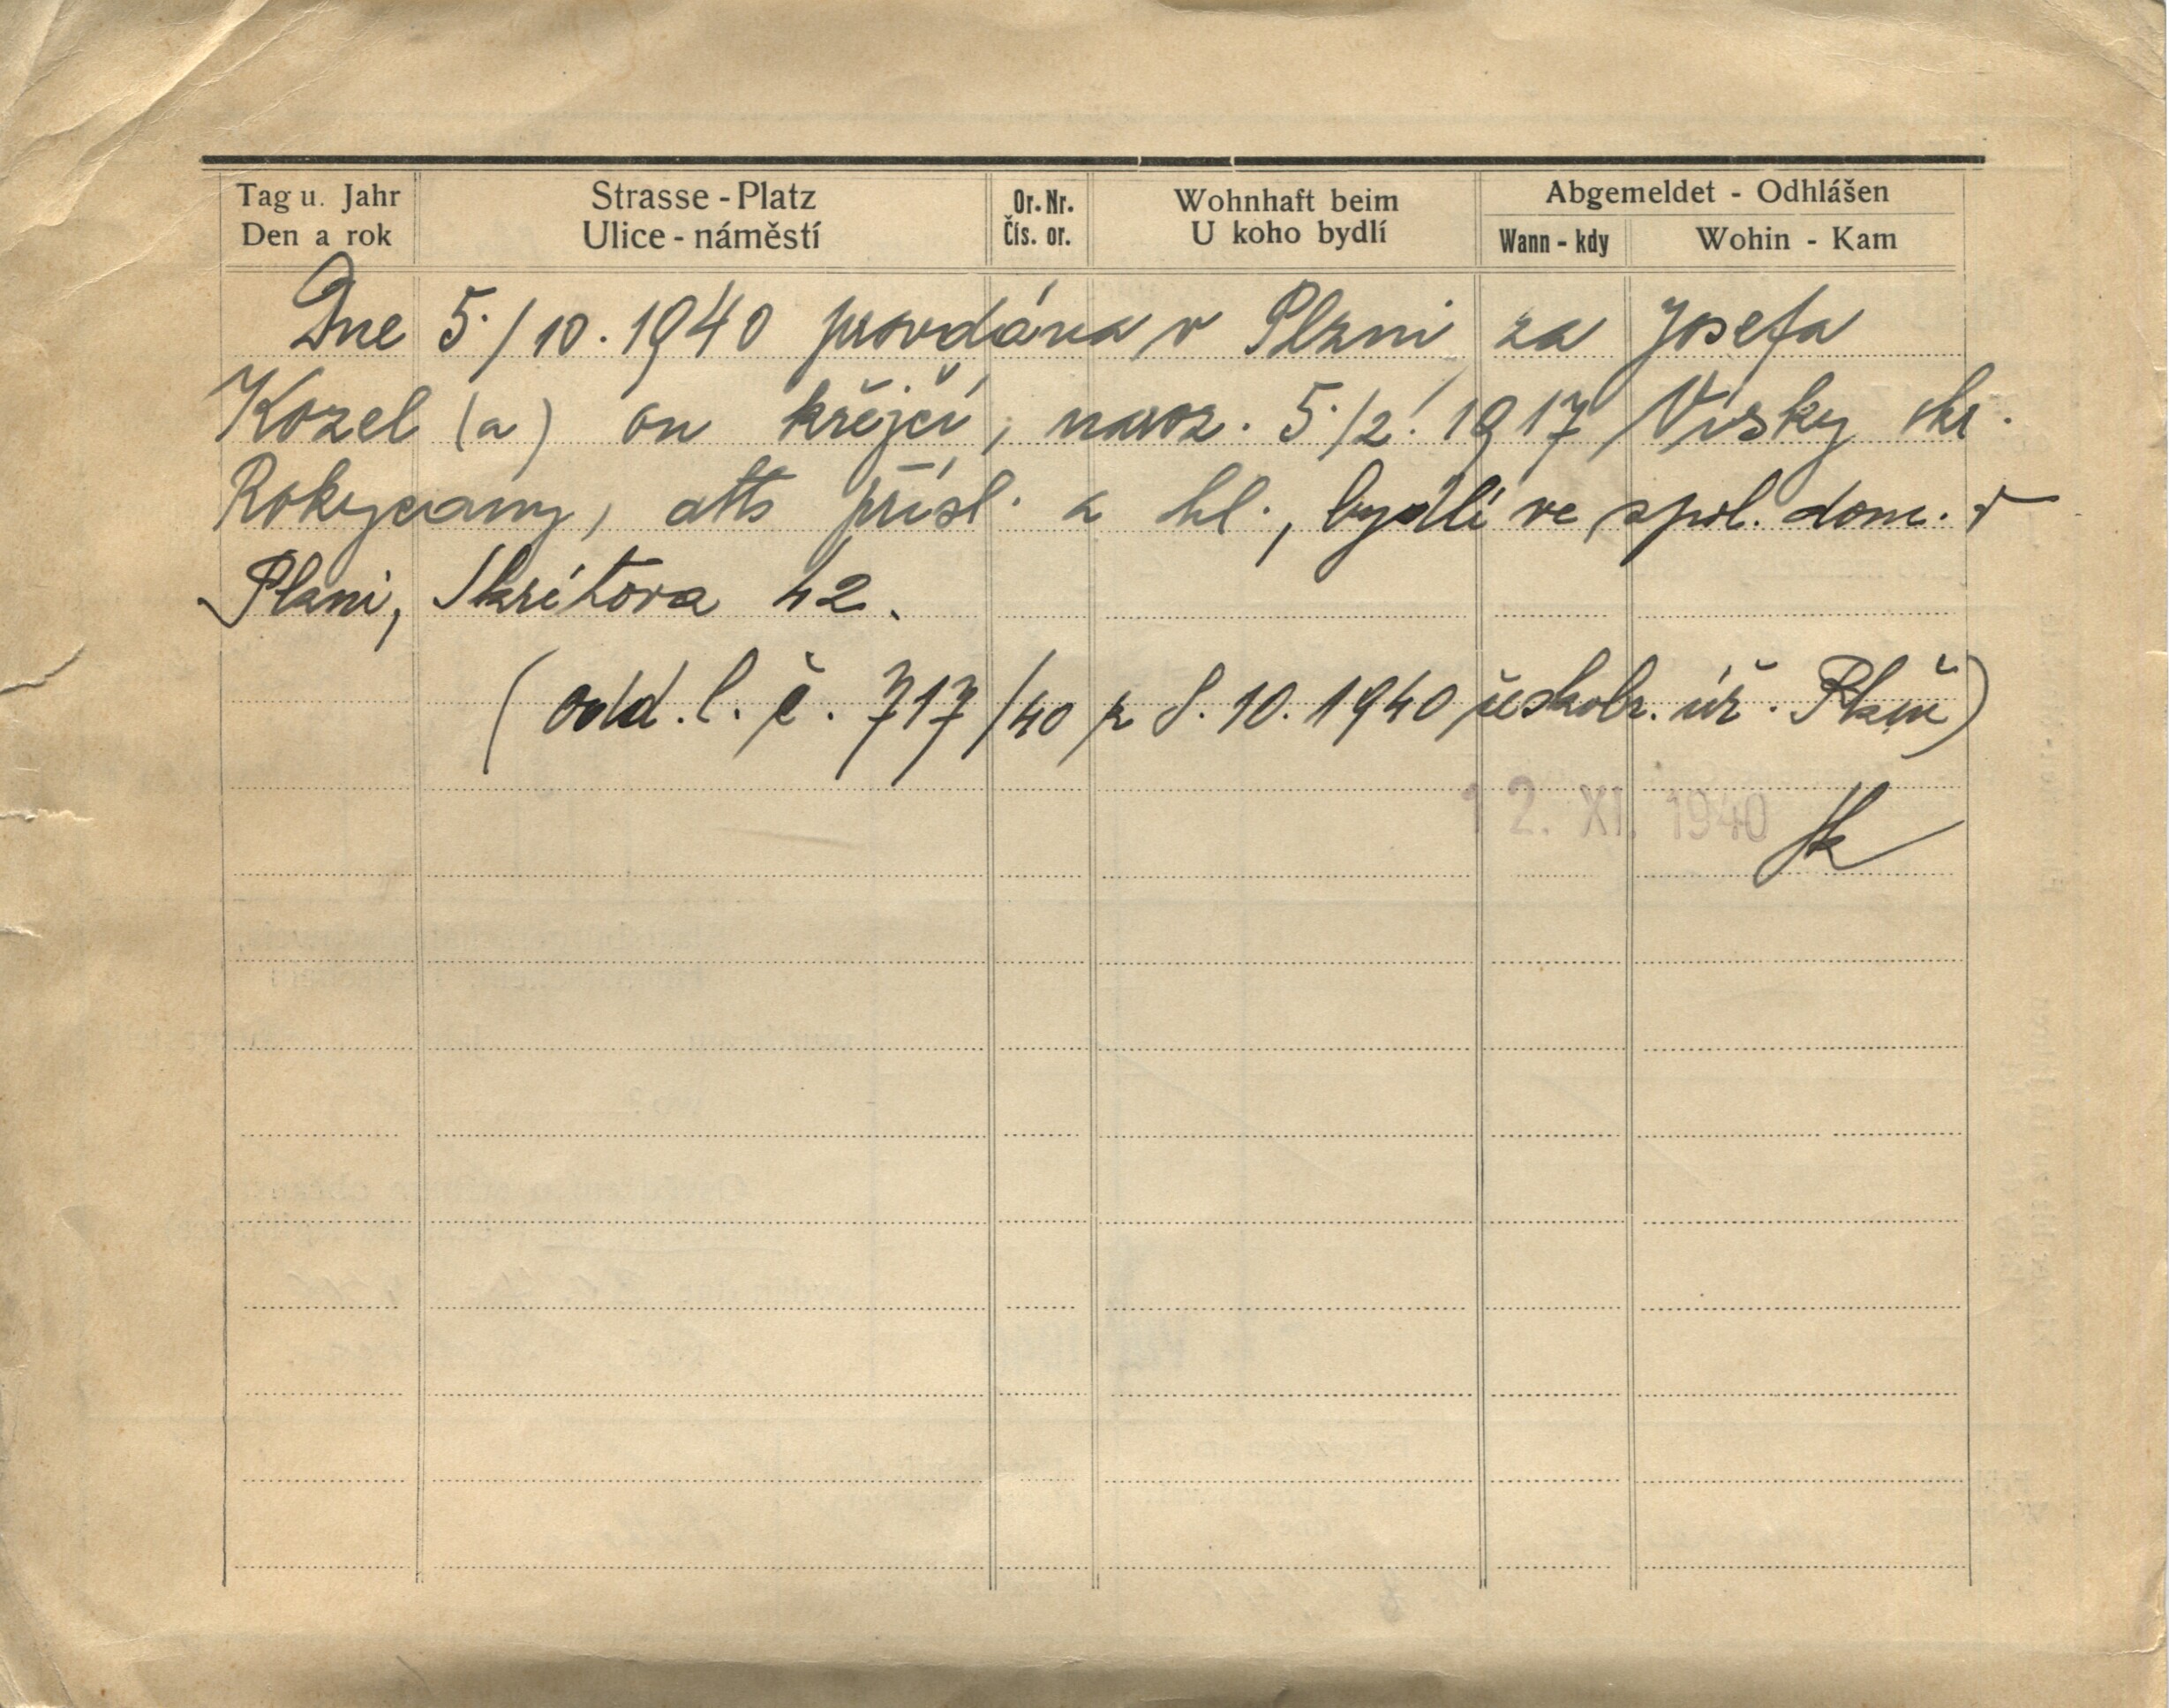 Tag u. Jahr
Den a rok
Strasse - Platz
Ulice - náměstí
Or. Nr.
Čís. or.
Wohnhaft beim
U koho bydlí
Abgemeldet - Odhlášen
Wann - kdy
Wohin - Kam
Dne 5./10. 1940 provdána v Plzni za Josefa
Kozel (a) on krejčí, naroz. 5./2. 1917 Vísky okr.
Rokycany, přísl. a hl., bydlí ve spol. dom. v
Plzni, Skrétova 42.
(odd. l. č. 717/40 z 8. 10. 1940 úř. Plzeň)
12. XI. 1940